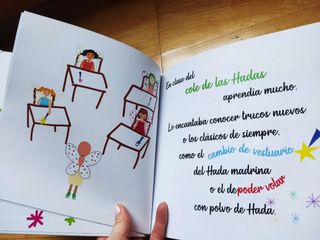 En clase del
cole de las Hadas
aprendia mucho.
Le encantaba conocer trucos nuevos
o los clásicos de siempre.
como el cambio de vestuario
del Hada madrina
o el de poder volar
con polvo de Hada.